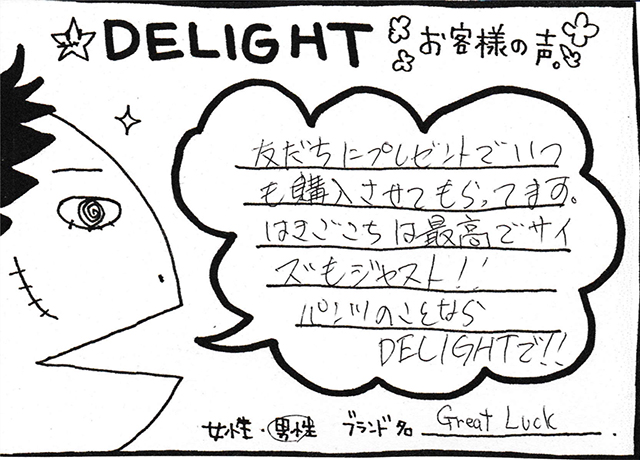 DELIGHT お客様の声。
友だちにプレゼントでいつ
も購入させてもらってます。
はきごこちは最高でサイ
ズもジャスト!!
パンツのことなら
DELIGHTで!!
女性・男性 ブランド名 Great Luck